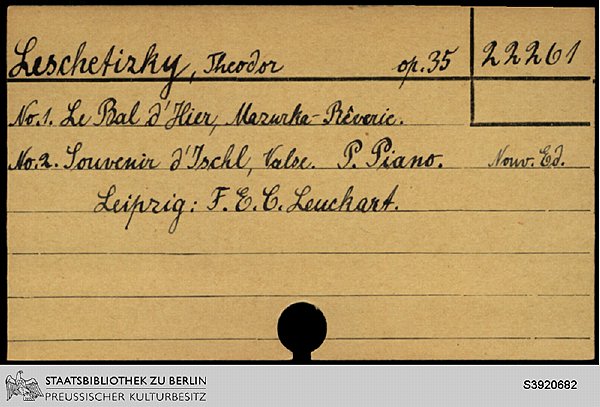 Leschetizky, Theodor op. 35 22261
No. 1. Le Bal d'Hier, Mazurka-Rêverie.
No. 2. Souvenir d'Ischl, Valse. P. Piano. Nouv. Ed.
Leipzig: F. E. C. Leuckart.
STAATSBIBLIOTHEK ZU BERLIN
PREUSSISCHER KULTURBESITZ
S3920682